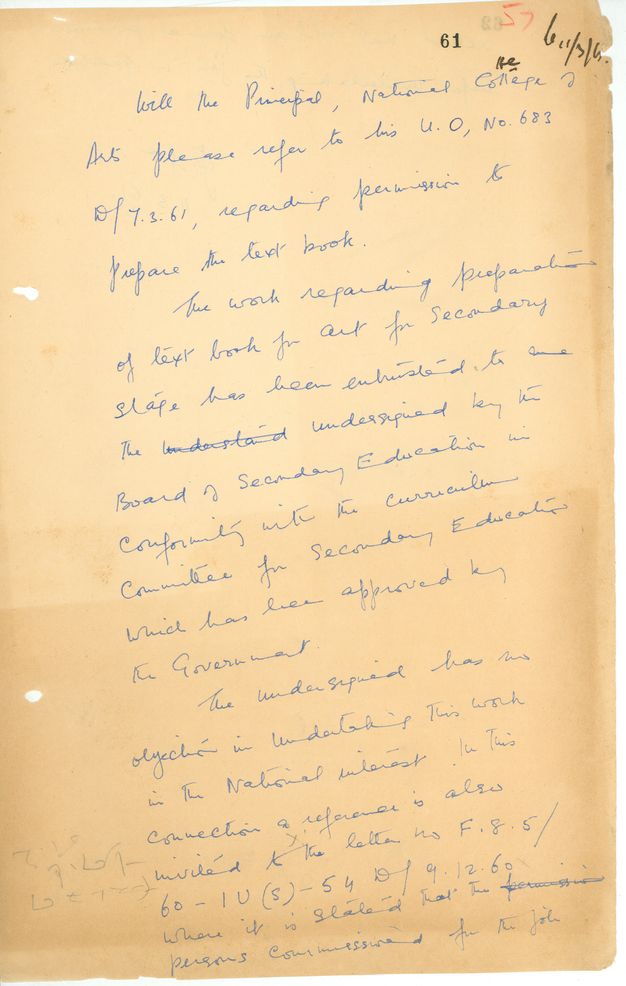 57
61
11/3/61.
Will the Principal, National College of
Arts please refer to his U.O, No. 683
D/ 7.3.61, regarding permission to
prepare the text book.
The work regarding preparation
of text book for art for Secondary
stage has been entrusted to me
the understand undersigned by the
Board of Secondary Education in
conformity with the curriculum
Committee for Secondary Education
which has been approved by
the Government.
The undersigned has no
objection in undertaking this work
in the National interest. In this
connection a reference is also
invited to the letter no F.8.5/
60 - IU (S) - 54 D/ 9.12.60
where it is stated that the permission
persons commissioned for the job